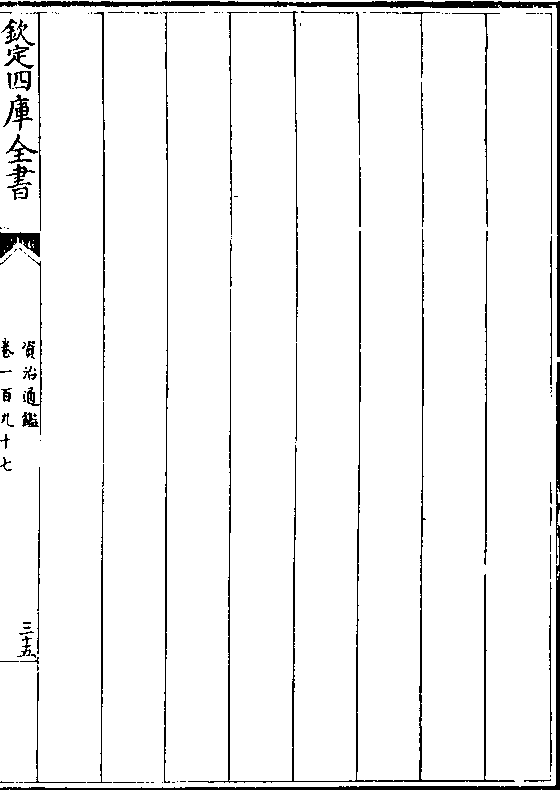 欽定四庫全書
資治通鑑
卷一百九十七
三十五